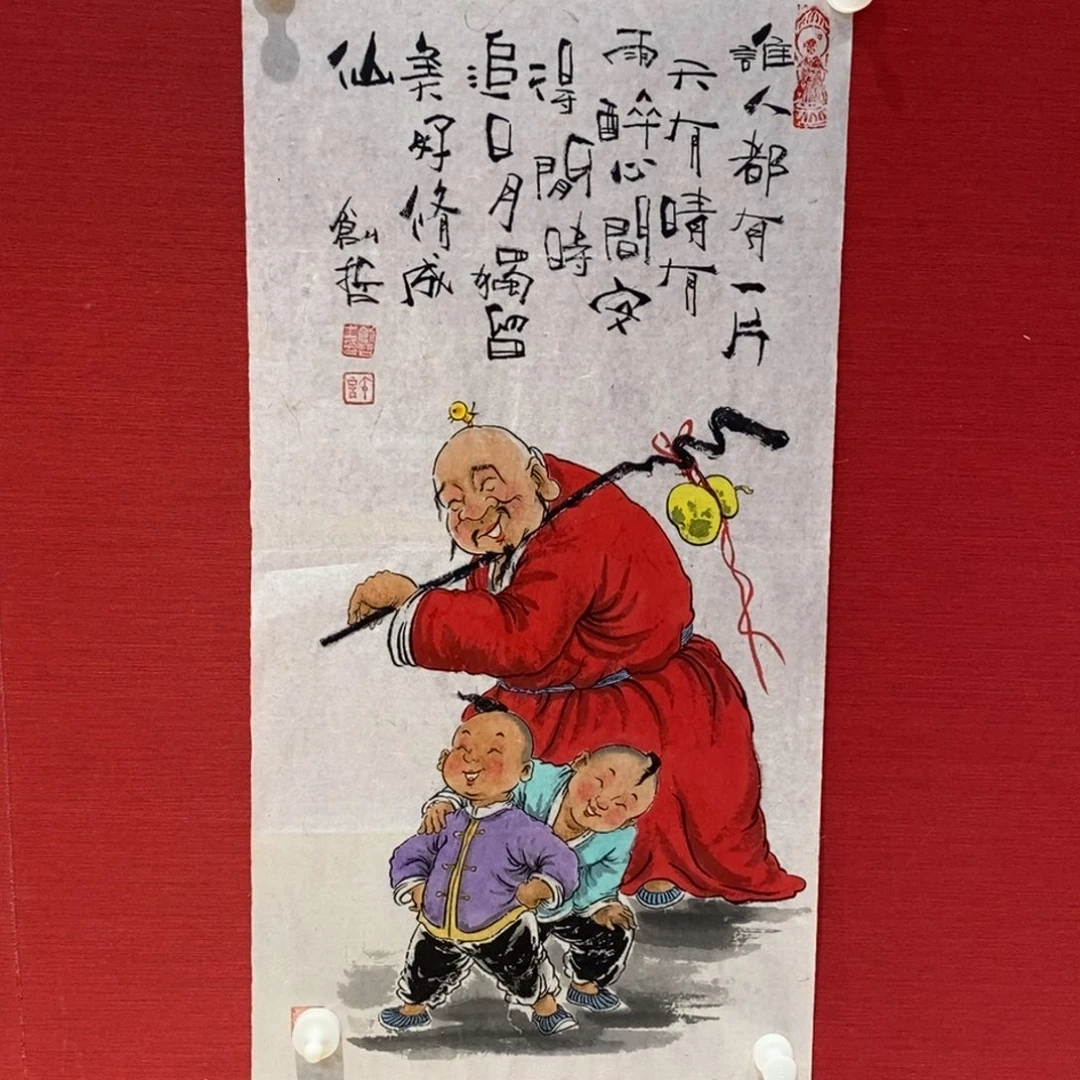 誰人都有一片
天有晴有
雨醉心間安
得閒時
追日月獨留
美好脩成
仙
創哲